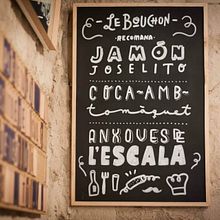 LE BOUCHON
- RECOMANA -
JAMÓN
JOSELITO
COCA-AMB-
tomàquet
ANXOVES DE
L'ESCALA